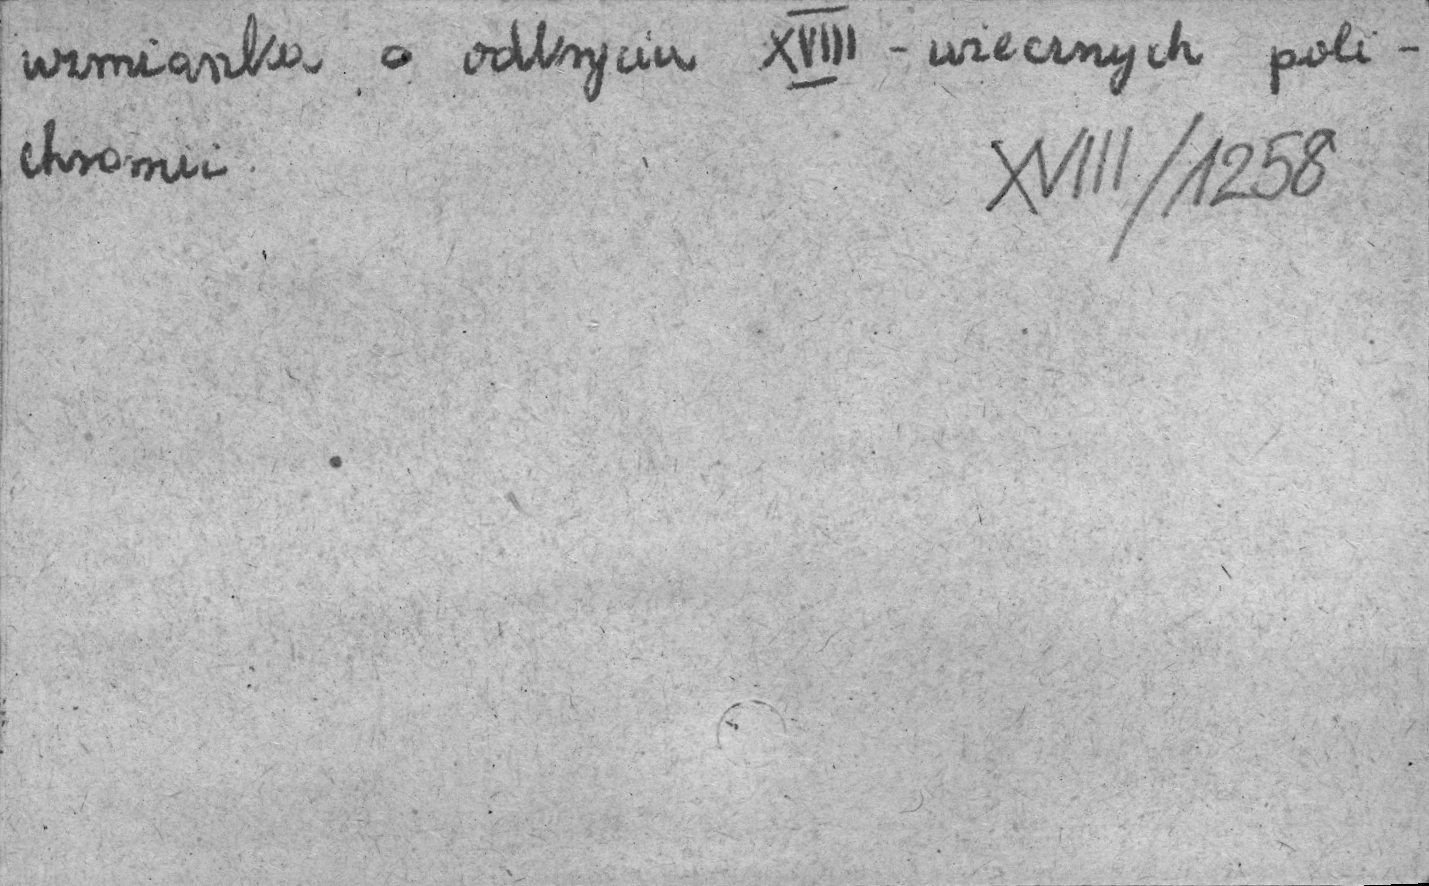 wzmianka o odkryciu XVIII - wiecznych poli -
chromii.
XVIII/1258